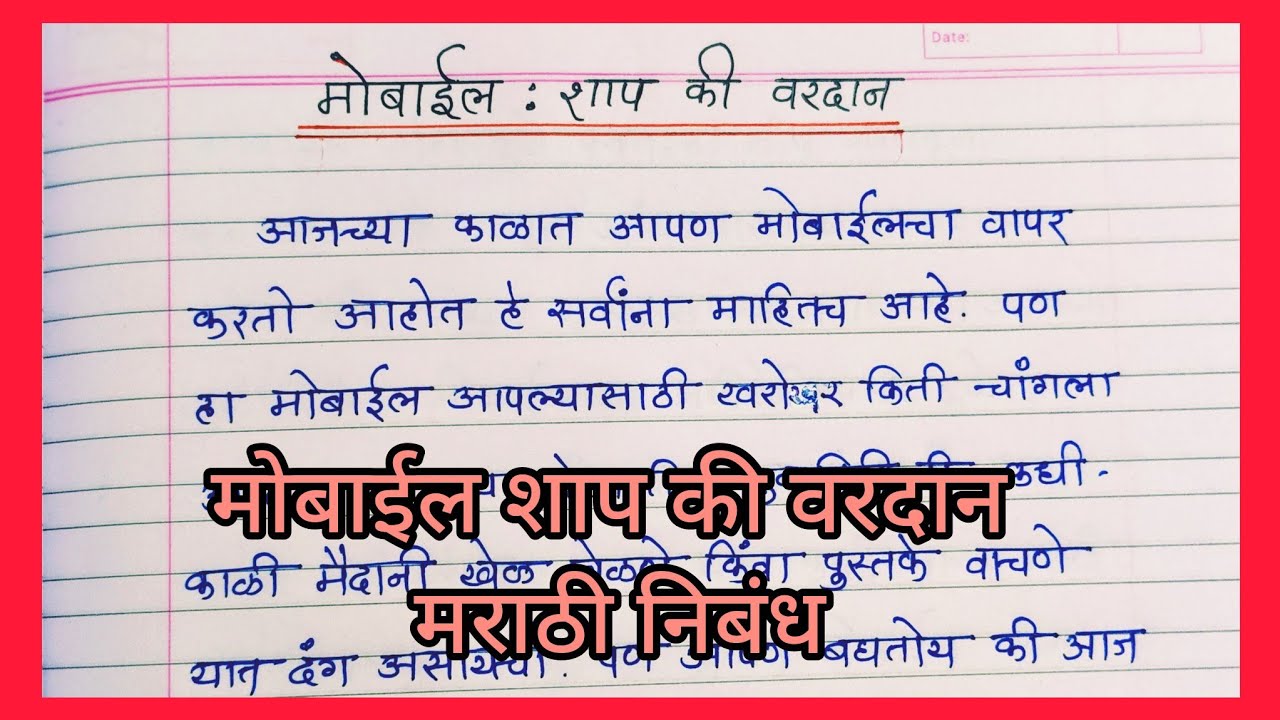 Date:
मोबाईल : शाप की वरदान
आजच्या काळात आपण मोबाईलचा वापर
करतो आहोत हे सर्वांना माहितच आहे. पण
हा मोबाईल आपल्यासाठी खरोखर किती चांगला
कधी-
मोबाईल शाप की वरदान
काळी मैदानी खेळ खेळणे किंवा पुस्तके वाचणे
मराठी निबंध
यात दंग असायचा. पण आपण बघतोय की आज